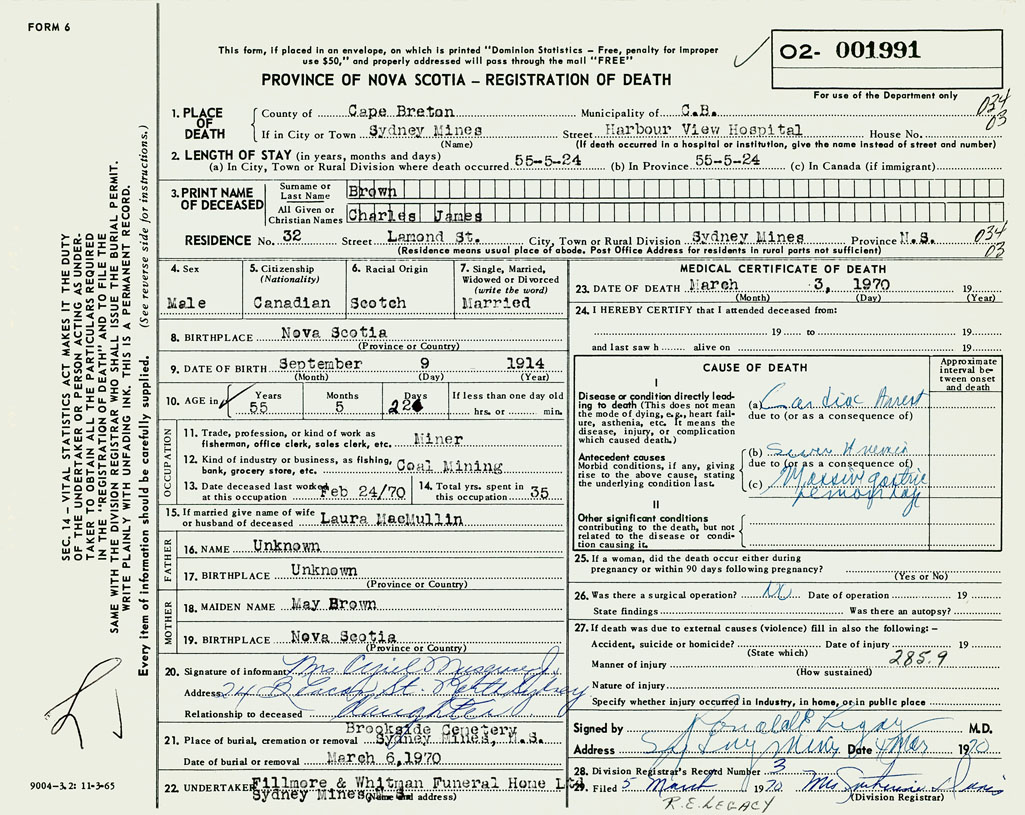 FORM 6
This form, if placed in an envelope, on which is printed "Dominion Statistics – Free, penalty for improper
use $50," and properly addressed will pass through the mail "FREE"
PROVINCE OF NOVA SCOTIA – REGISTRATION OF DEATH
02- 001991
For use of the Department only
1. PLACE OF DEATH County of Cape Breton Municipality of C.B. 034 03
If in City or Town Sydney Mines Street Harbour View Hospital House No.
(Name) (If death occurred in a hospital or institution, give the name instead of street and number)
2. LENGTH OF STAY (in years, months and days)
(a) In City, Town or Rural Division where death occurred 55-5-24 (b) In Province 55-5-24 (c) In Canada (if immigrant)
3. PRINT NAME OF DECEASED Surname or Last Name Brown
All Given or Christian Names Charles James
RESIDENCE No. 32 Street Lamond St. City, Town or Rural Division Sydney Mines Province N.S. 034 03
(Residence means usual place of abode. Post Office Address for residents in rural parts not sufficient)
4. Sex Male
5. Citizenship (Nationality) Canadian
6. Racial Origin Scotch
7. Single, Married, Widowed or Divorced (write the word) Married
8. BIRTHPLACE Nova Scotia
(Province or Country)
9. DATE OF BIRTH September 9 1914
(Month) (Day) (Year)
10. AGE in Years 55 Months 5 Days If less than one day old hrs. or min.
OCCUPATION
11. Trade, profession, or kind of work as fisherman, office clerk, sales clerk, etc. Miner
12. Kind of industry or business, as fishing, bank, grocery store, etc. Coal Mining
13. Date deceased last worked at this occupation Feb 24/70
14. Total yrs. spent in this occupation 35
15. If married give name of wife or husband of deceased Laura MacMullin
FATHER
16. NAME Unknown
17. BIRTHPLACE Unknown
(Province or Country)
MOTHER
18. MAIDEN NAME May Brown
19. BIRTHPLACE Nova Scotia
(Province or Country)
20. Signature of informant Mrs
Address St. North Sydney
Relationship to deceased daughter
21. Place of burial, cremation or removal Brookside Cemetery
Sydney Mines, N.S.
Date of burial or removal March 6,1970
22. UNDERTAKER Fillmore & Whitman Funeral Home Ltd
Sydney Mines N.S.
(Name and address)
MEDICAL CERTIFICATE OF DEATH
23. DATE OF DEATH March 3, 1970 19
(Month) (Day) (Year)
24. I HEREBY CERTIFY that I attended deceased from:
19 to 19
and last saw h alive on 19
CAUSE OF DEATH
Approximate interval between onset and death
I
Disease or condition directly leading to death (This does not mean the mode of dying, e.g., heart failure, asthenia, etc. It means the disease, injury, or complication which caused death.)
(a) Cardiac Arrest
due to (or as a consequence of)
Antecedent causes
Morbid conditions, if any, giving rise to the above cause, stating the underlying condition last.
(b) Severe Anemia
due to (or as a consequence of)
(c) Massive gastric
hemorrhage
II
Other significant conditions
contributing to the death, but not related to the disease or condition causing it.
25. If a woman, did the death occur either during
pregnancy or within 90 days following pregnancy?
(Yes or No)
26. Was there a surgical operation? No Date of operation 19
State findings Was there an autopsy?
27. If death was due to external causes (violence) fill in also the following:–
Accident, suicide or homicide? Date of injury 19
(State which) 285.9
Manner of injury
(How sustained)
Nature of injury
Specify whether injury occurred in Industry, in home, or in public place
Signed by M.D.
Address Sydney Mines Date 4 Mar 1970
28. Division Registrar's Record Number 3
29. Filed 5 March 1970 Mrs
(Division Registrar)
R.E. LEGACY
SEC. 14 – VITAL STATISTICS ACT MAKES IT THE DUTY
OF THE UNDERTAKER OR PERSON ACTING AS UNDER-
TAKER TO OBTAIN ALL THE PARTICULARS REQUIRED
IN THE "REGISTRATION OF DEATH" AND TO FILE THE
SAME WITH THE DIVISION REGISTRAR WHO SHALL ISSUE THE BURIAL PERMIT.
WRITE PLAINLY WITH UNFADING INK. THIS IS A PERMANENT RECORD.
Every item of information should be carefully supplied. (See reverse side for instructions.)
9004-3.2: 11-3-65